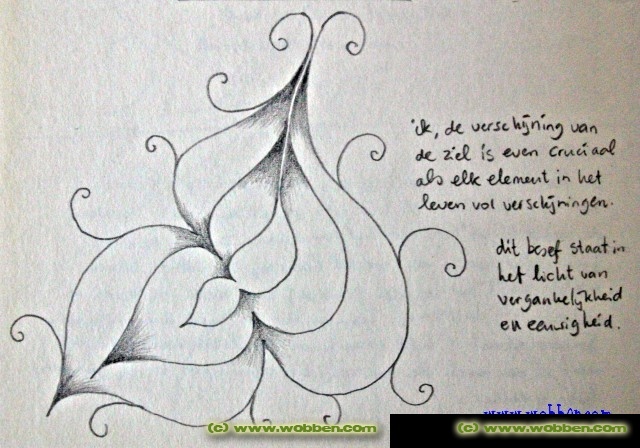 ik, de verschijning van
de ziel is even cruciaal
als elk element in het
leven vol verschijningen.
dit besef staat in
het licht van
vergankelijkheid
en eeuwigheid.
www.wobben.com
(c) www.wobben.com
(c) www.wobben.com